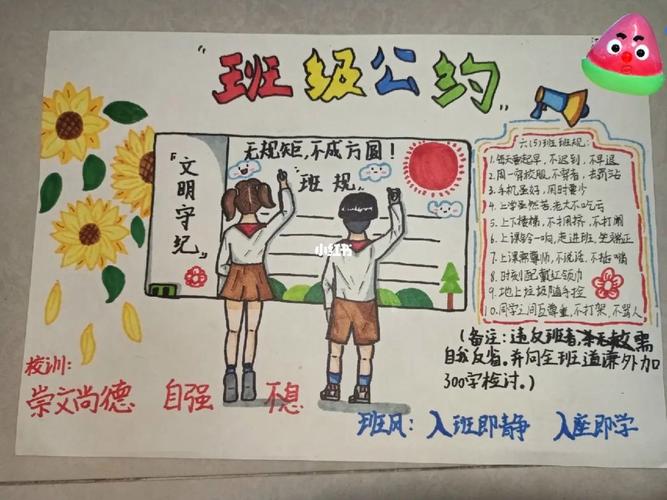 “班级公约”
无规矩，不成方圆！
“文明守纪”
“班规”
小红书
六(5)班班规：
1. 每天要起早，不迟到，不早退
2. 周一穿校服，不穿者，去罚站
3. 手机虽好，用时要少
4. 上学虽然苦，老大不吃亏
5. 上下楼梯，不拥挤，不打闹
6. 上课铃一响，走进班，坐端正
7. 上课要尊师，不说话，不插嘴
8. 时刻配戴红领巾
9. 地上垃圾随手捡
10. 同学之间互尊重，不打架，不骂人
(备注：违反班者 需
自我反省。并向全班道谦外加
300字检讨。)
校训：
崇文尚德 自强 不息
班风：入班即静 入座即学